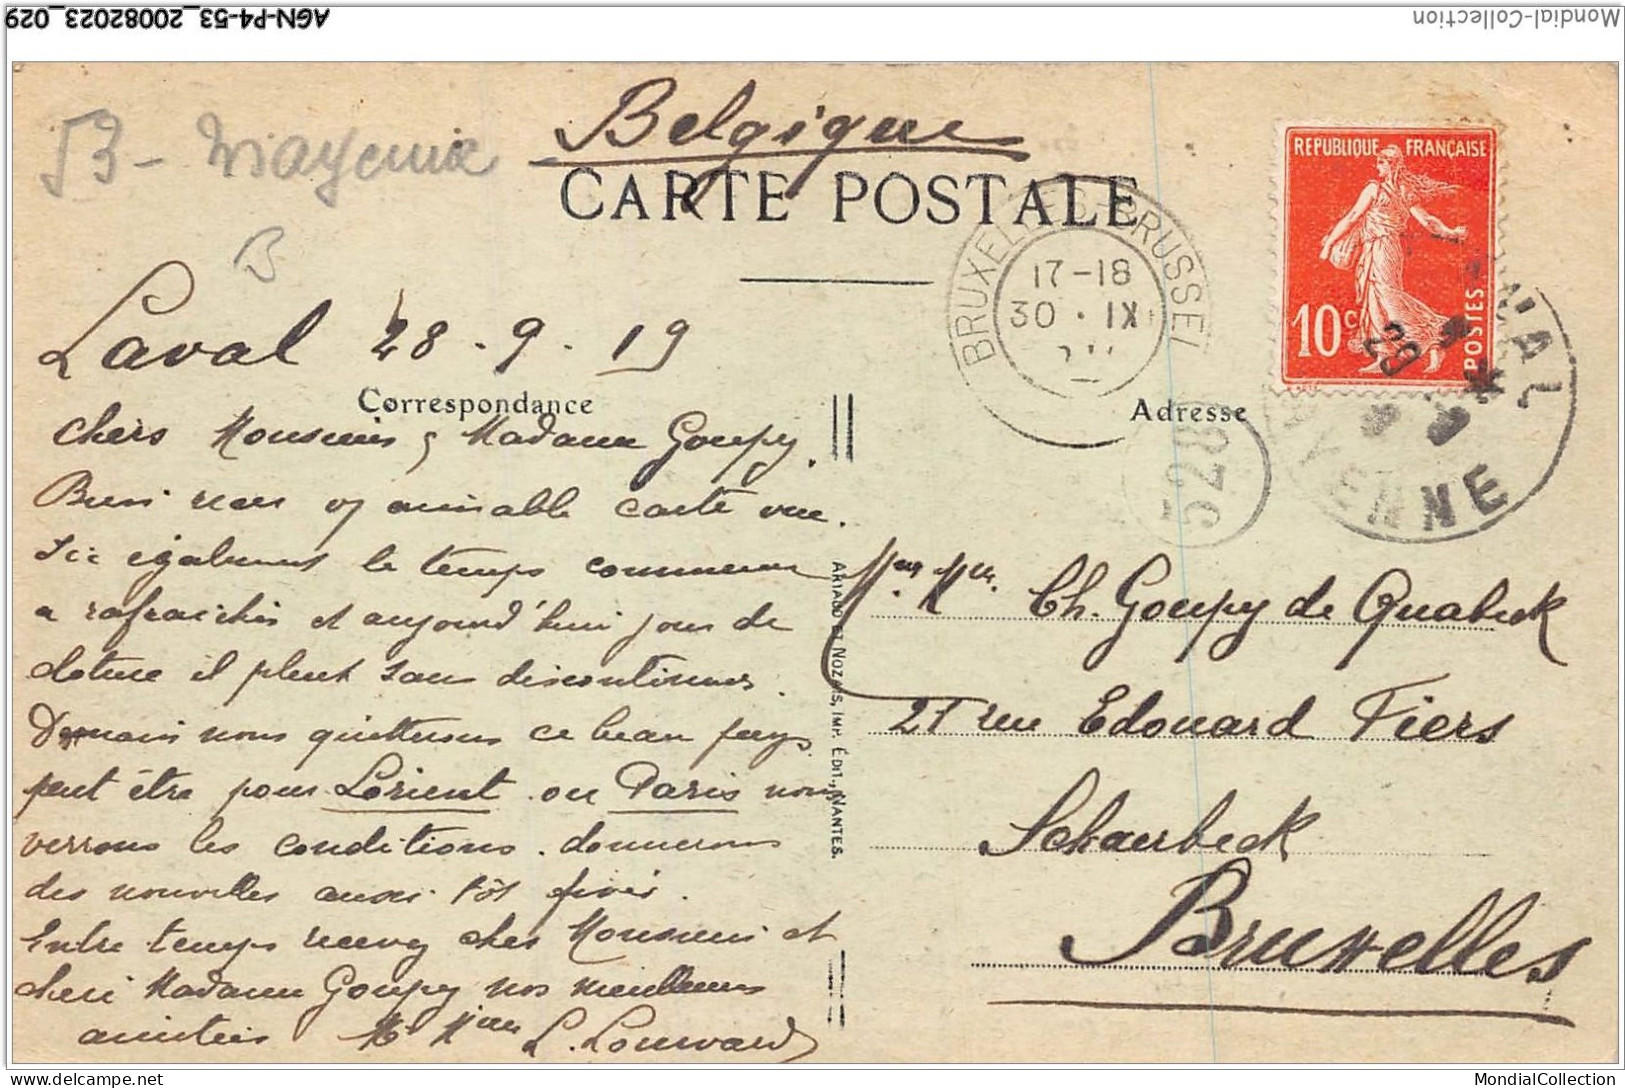 AGN-P4-53_20082023_029
Mondial-Collection
53 - Mayenne
B
Belgique
CARTE POSTALE
REPUBLIQUE FRANÇAISE
10c
POSTES
BRUXELLES-BRUSSEL
17-18
30 · IX
LAVAL
29
MAYENNE
528
Laval 28 - 9 - 19
Correspondance
Adresse
Chers Monsieur & Madame Goupy.
Bien reçu v/ aimable carte vue.
Ici également le temps commence
a rafraichir et aujourd'hui jour de
cloture il pleut sans discontinuer.
Demain nous quitterons ce beau pays
peut être pour Lorient ou Paris nous
verrons les conditions. donnerons
des nouvelles aussi tôt fixés.
Entre temps recevez cher Monsieur et
chère Madame Goupy nos meilleures
amitiés Mr Mme L. Louward
ARTAUD ET NOZAIS, IMP. ÉDIT., NANTES.
Mr. Mme. Ch. Goupy de Quabeck
21 rue Edouard Fiers
Schaerbeck
Bruxelles
www.delcampe.net
MondialCollection